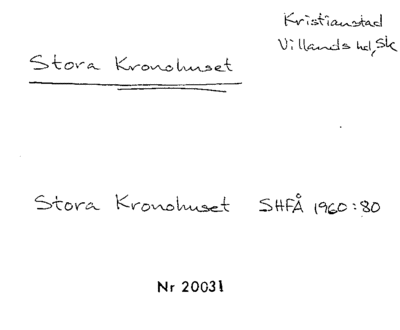 Kristianstad
Villands hd, Sk
Stora Kronohuset
Stora Kronohuset SHFÅ 1960:80
Nr 20031